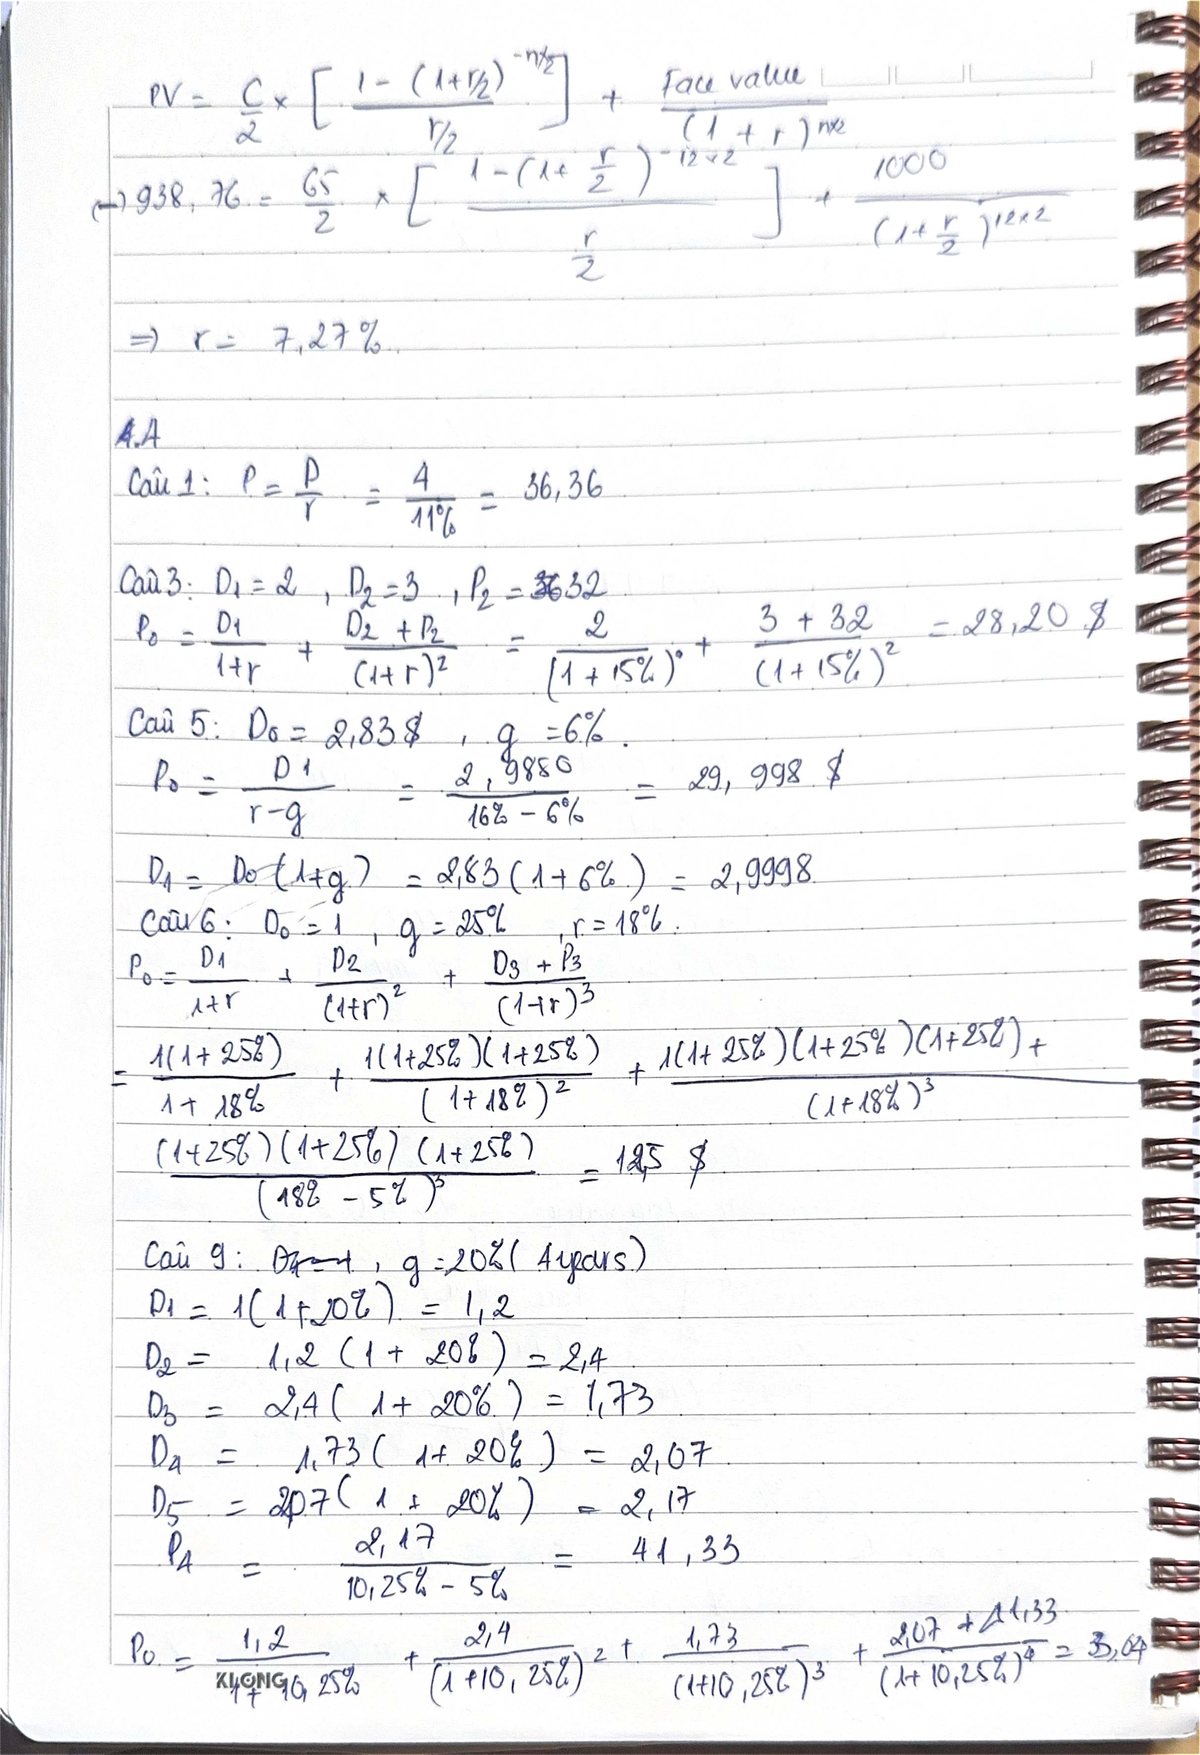 PV = C/2 × [ (1 - (1+r/2)^-n×2) / (r/2) ] + Face value / (1 + r)^n×2
(=) 938,76 = 65/2 × [ (1 - (1 + r/2)^-12×2) / (r/2) ] + 1000 / (1 + r/2)^12×2
=> r = 7,27%
A.A
Câu 1: P = D/r = 4/11% = 36,36
Câu 3: D1 = 2 , D2 = 3 , P2 = 32
P0 = D1/(1+r) + (D2 + P2)/(1+r)^2 = 2/(1 + 15%) + (3 + 32)/(1 + 15%)^2 = 28,20 $
Câu 5: D0 = 2,83 $ , g = 6% .
P0 = D1/(r-g) = 2,9880/(16% - 6%) = 29,998 $
D1 = D0 (1+g) = 2,83 (1 + 6%) = 2,9998
Câu 6: D0 = 1 , g = 25% , r = 18% .
P0 = D1/(1+r) + D2/(1+r)^2 + (D3 + P3)/(1+r)^3
= 1(1 + 25%)/(1 + 18%) + 1(1+25%)(1+25%)/(1+18%)^2 + 1(1+25%)(1+25%)(1+25%) + / (1+18%)^3
(1+25%)(1+25%)(1+25%)/(18% - 5%)^3 = 12,5 $
Câu 9: , g = 20% (4 years)
D1 = 1(1+20%) = 1,2
D2 = 1,2 (1 + 20%) = 2,4
D3 = 2,4 (1 + 20%) = 1,73
D4 = 1,73 (1 + 20%) = 2,07
D5 = 2,07 (1 + 20%) = 2,17
P4 = 2,17/(10,25% - 5%) = 41,33
P0 = 1,2/(1 + 10,25%) + 2,4/(1 + 10,25%)^2 + 1,73/(1+10,25%)^3 + (2,07 + 41,33)/(1+10,25%)^4 =
KLONG